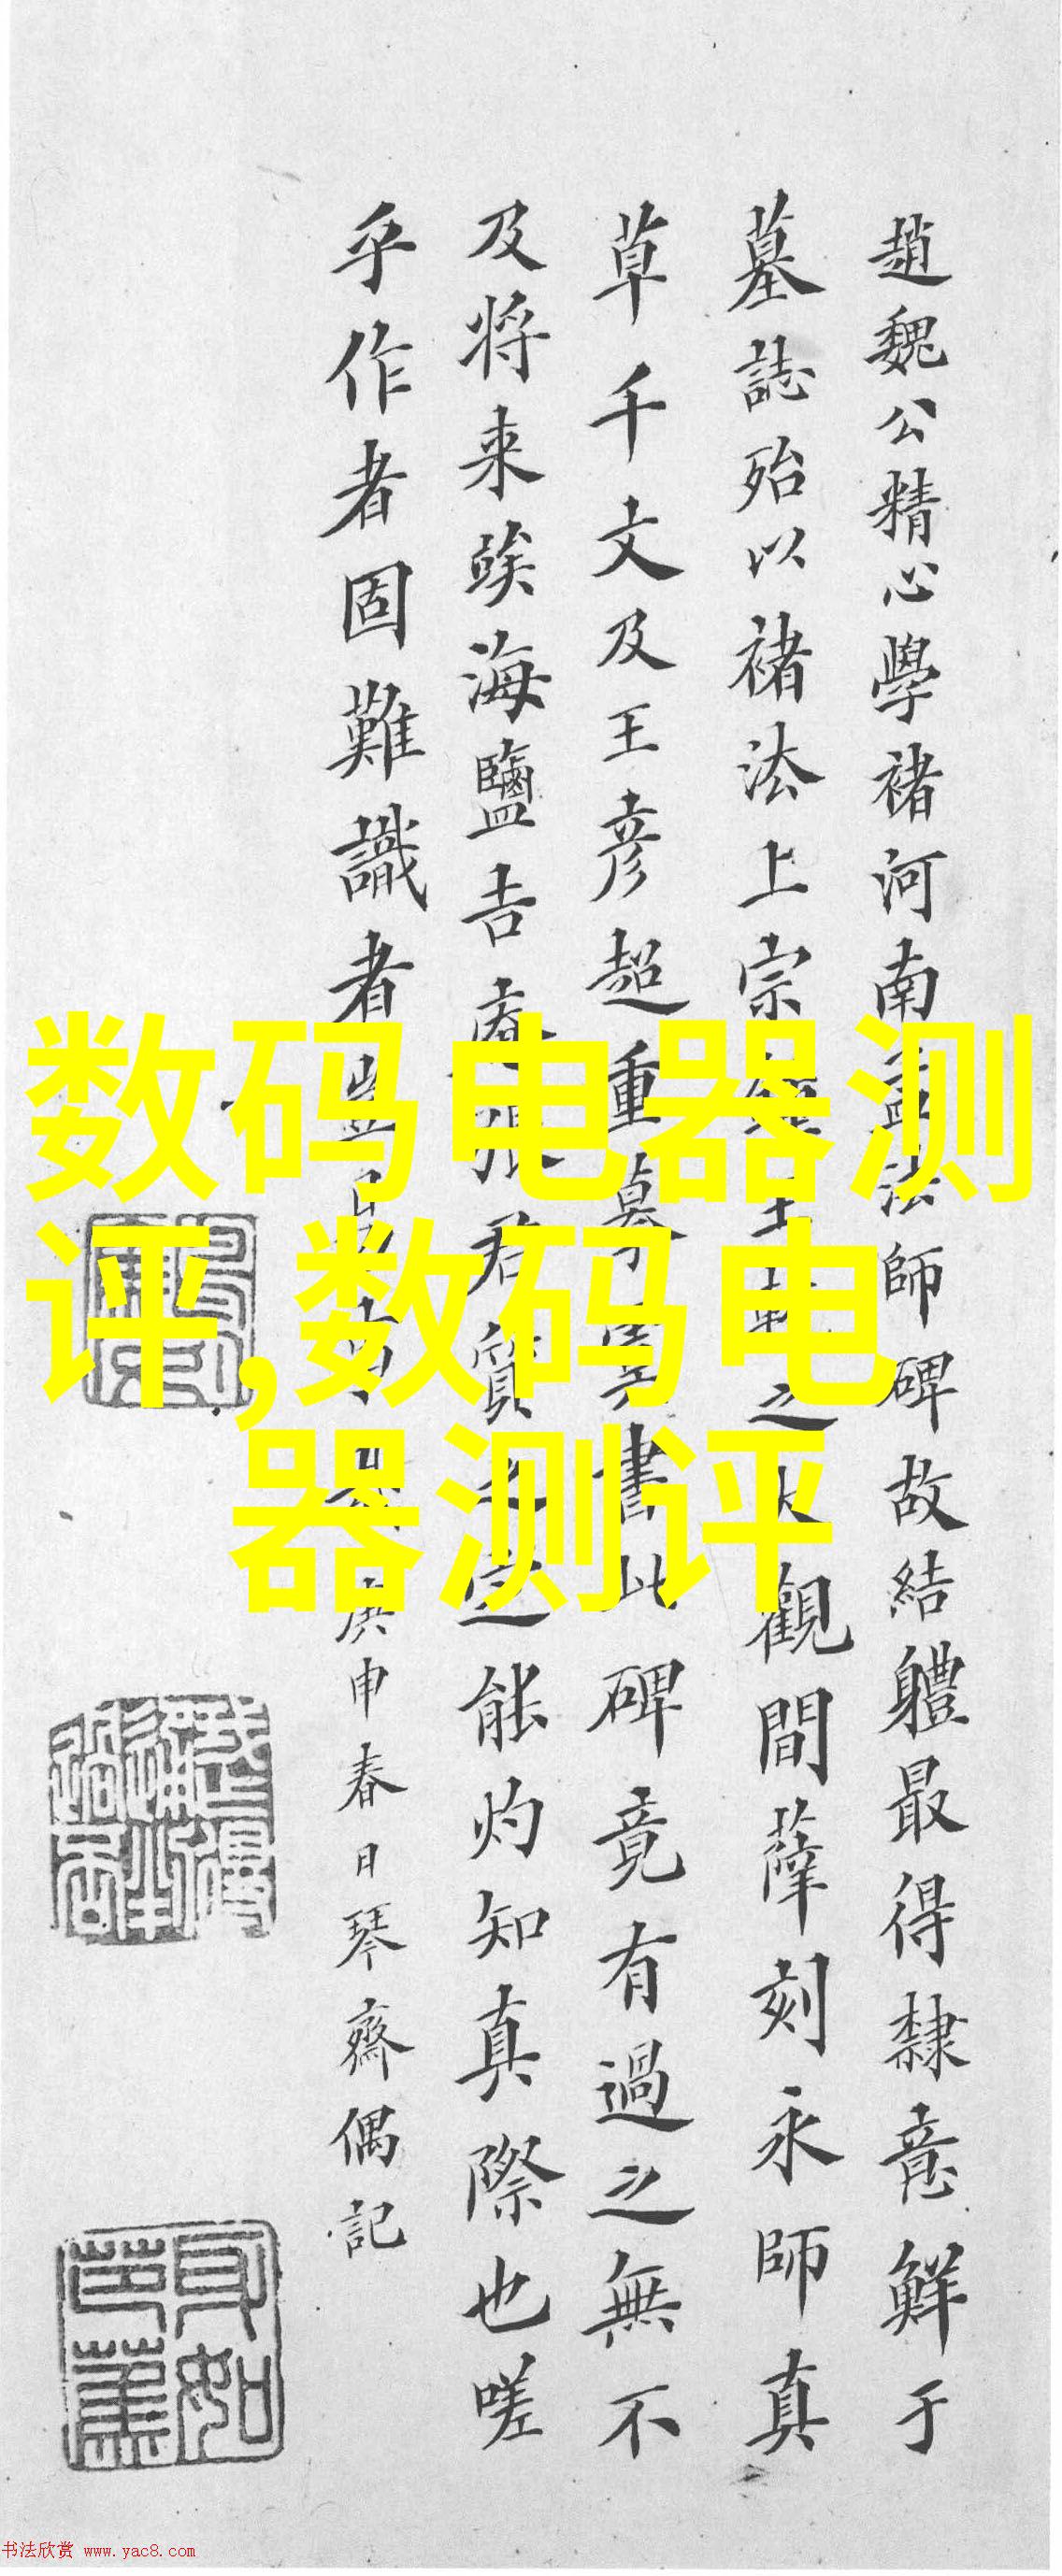 趙魏公精心學褚河南孟法師碑故結軆最得隸意鮮于
墓誌殆以褚法上宗鍾王較之大觀間薛刻永師真
草千文及王彥超重摹虞書此碑竟有過之無不
及将来竢海鹽吉張君質之定能灼知真際也嗟
乎作者固難識者豈易庚申春日琴齋偶記
数码电器测
评,数码电
器测评
书法欣赏 www.yac8.com